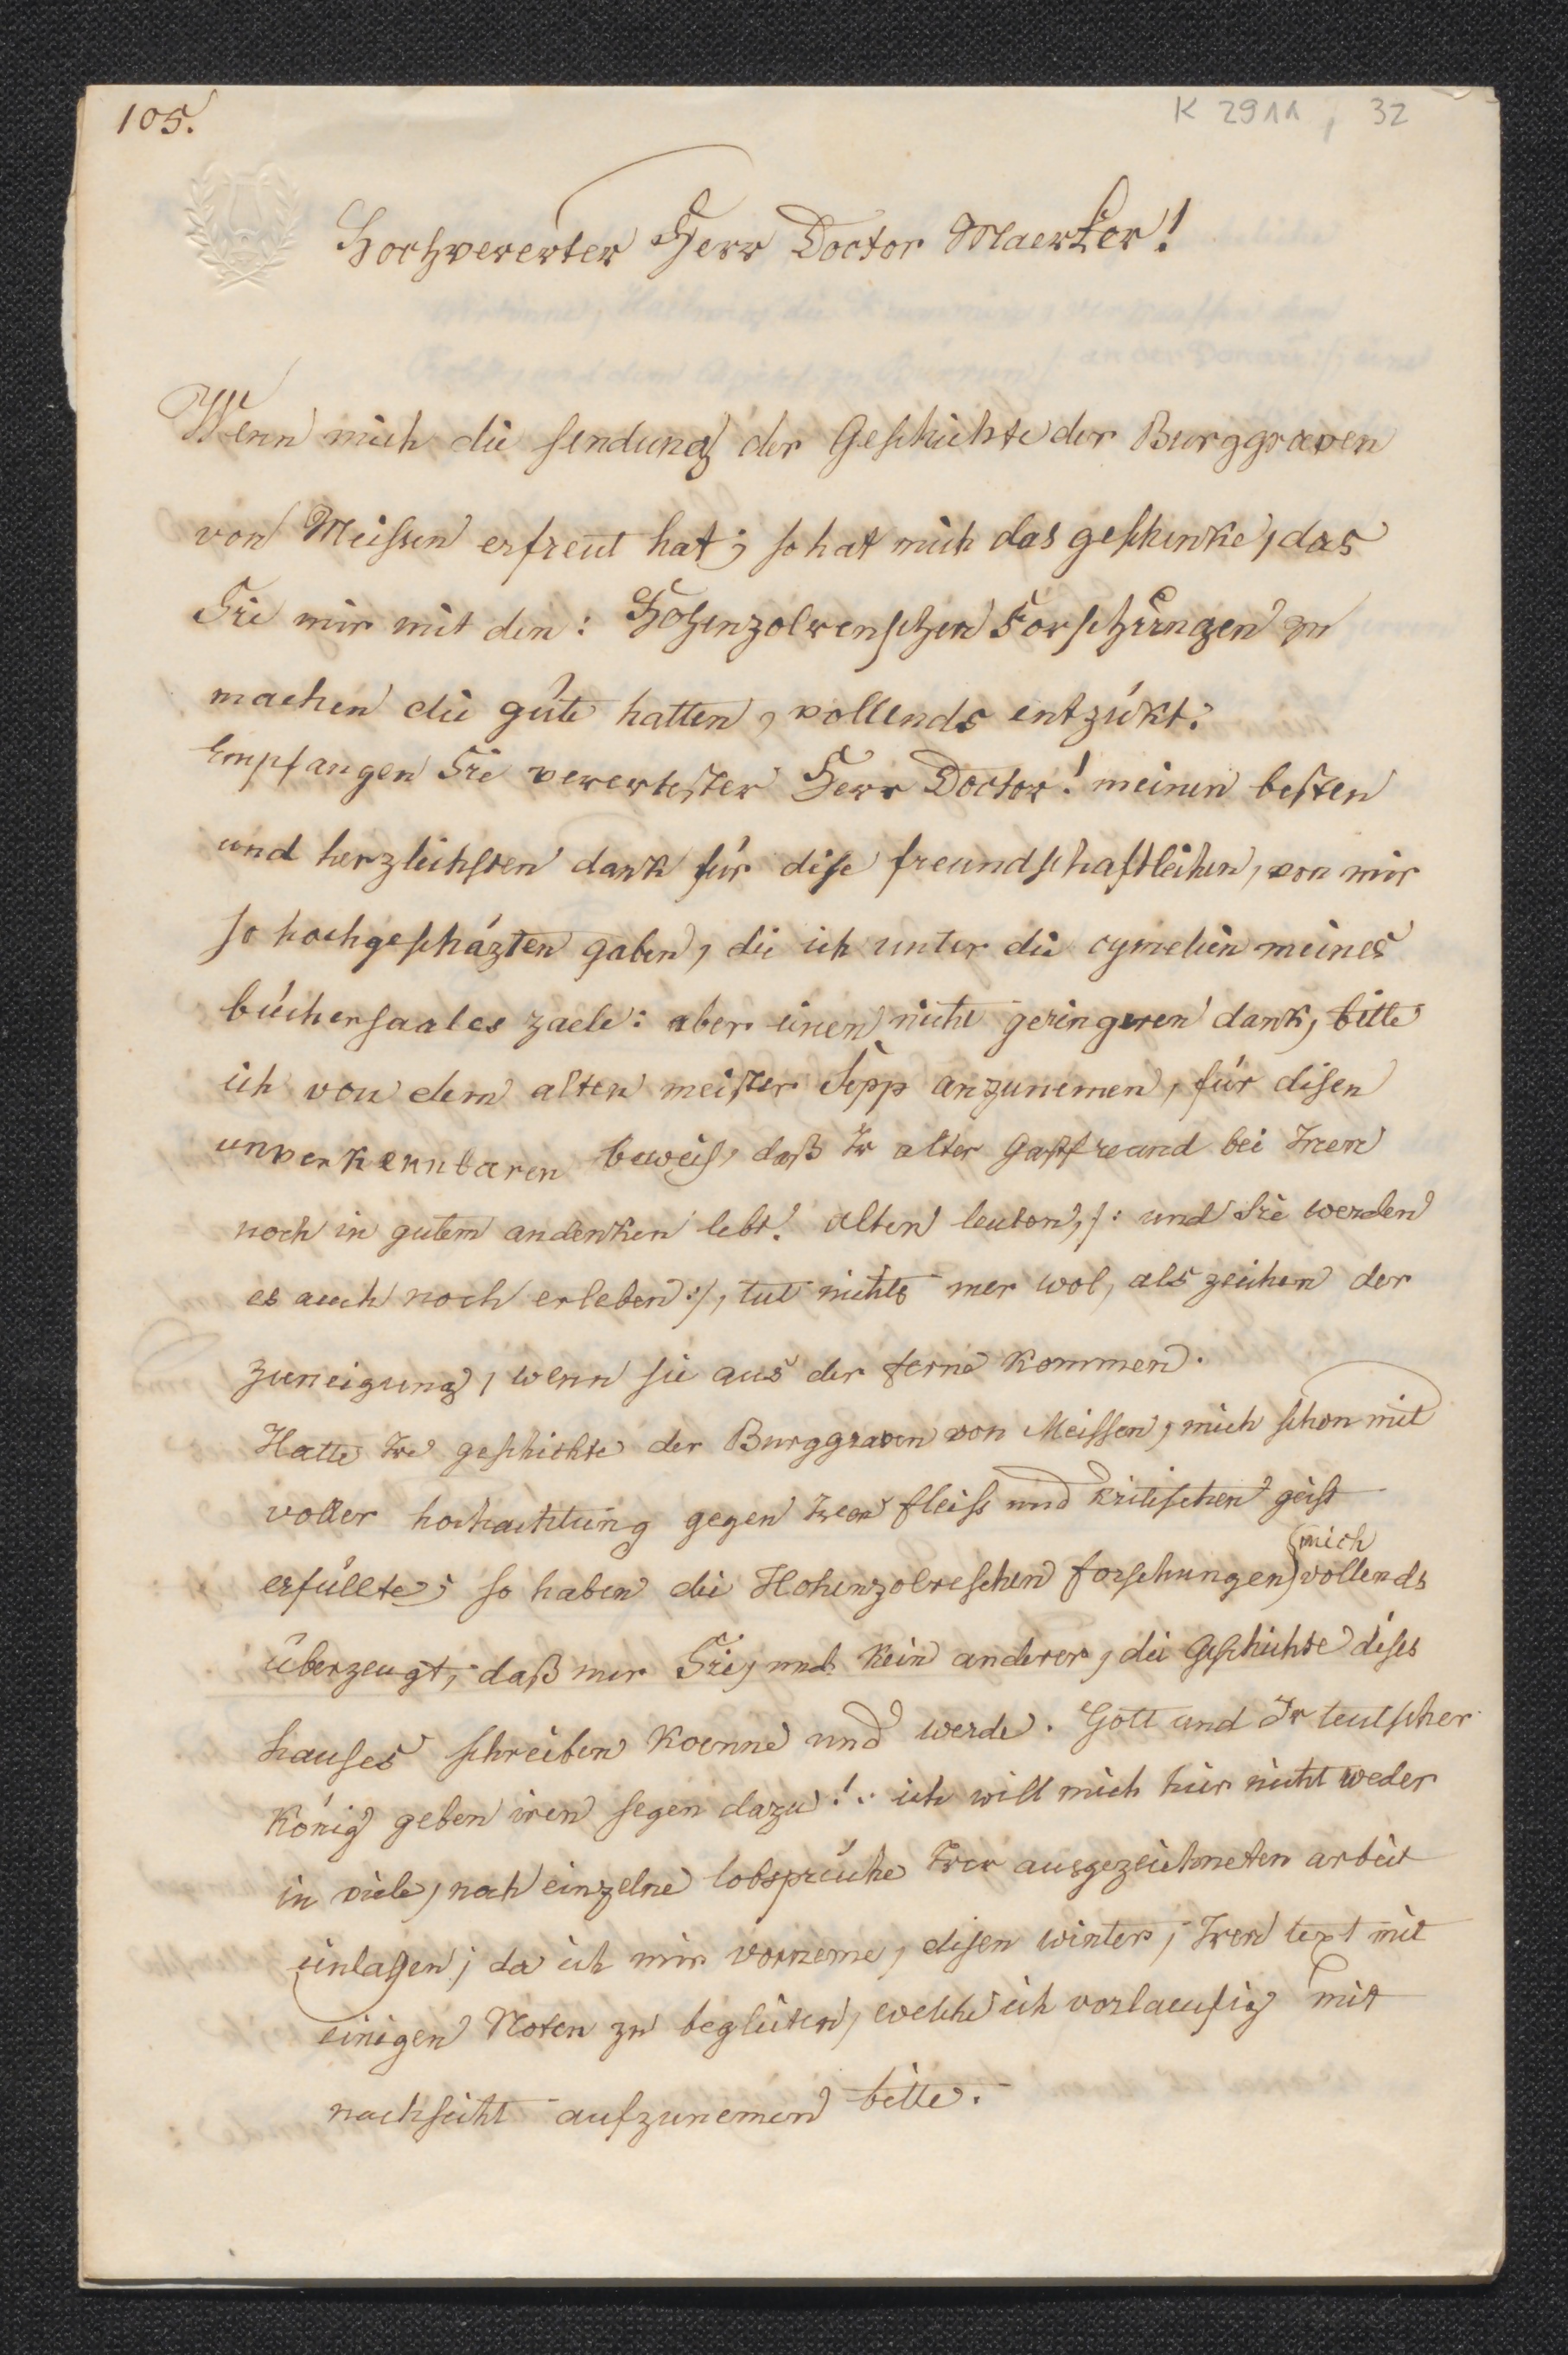 105.
K 2911, 32
Hochvererter Herr Doctor Maerker!
Wenn mich die sendung der Geschichte der Burggraven
von Meissen erfreut hat; so hat mich das geschenke, das
Sie mir mit den: Hohenzolrenschen Forschungen zu
machen die güte hatten, vollends entzükt.
Empfangen Sie verertester Herr Doctor! meinen besten
und herzlichsten dank für dise freundschaftlichen, von mir
so hochgeschäzten gaben, die ich unter die cymelien meines
büchersaales zaele: aber einen nicht geringeren dank, bitte
ich von dem alten meister Sepp anzunemen, für disen
unverkennbaren beweis, daß Ir alter Gastfreund bei Inen
noch in gutem andenken lebt. alten leuten, /: und Sie werden
es auch noch erleben :/, tut nichts mer wol, als zeichen der
zuneigung, wenn sie aus der ferne kommen.
Hatte Ire geschichte der Burggraven von Meissen, mich schon mit
voller hochachtung gegen Iren fleiss und kritischen geist
erfüllte; so haben die Hohenzolreschen forschungen mich vollends
überzeugt, daß nur Sie, und kein anderer, die Geschichte dises
hauses schreiben koenne und werde. Gott und Ir teutscher
König geben iren segen dazu! ich will mich hier nicht weder
in viele, noch einzelne lobsprüche Irer ausgezeichneten arbeit
einlassen; da ich mir vorneme, disen winter, Iren text mit
einigen Noten zu begleiten, welche ich vorlaeufig mit
nachsicht aufzunemen bitte.